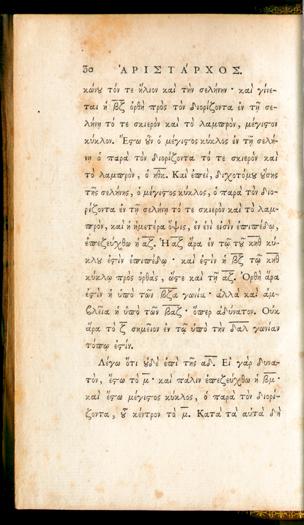 30 ἈΡΙΣΤΑΡΧΟΣ.
κώνου τόν τε ἥλιον καὶ τὴν σελήνην· καὶ γίνε-
ται ἡ βζ ὀρθὴ πρὸς τὸν διορίζοντα ἐν τῇ σε-
λήνῃ τό τε σκιερὸν καὶ τὸ λαμπρὸν, μέγιστον
κύκλον. Ἔστω οὖν ὁ μέγιστος κύκλος ἐν τῇ σελή-
νῃ ὁ παρὰ τὸν διορίζοντα τό τε σκιερὸν καὶ
τὸ λαμπρὸν, ὁ ηθκ. Καὶ ἐπεὶ, διχοτόμου οὔσης
τῆς σελήνης, ὁ μέγιστος κύκλος, ὁ παρὰ τὸν διο-
ρίζοντα ἐν τῇ σελήνῃ τό τε σκιερὸν καὶ τὸ λαμ-
πρὸν, καὶ ἡ ἡμετέρα ὄψις, ἐν ἑνί εἰσιν ἐπιπέδῳ,
ἐπεζεύχθω ἡ αζ. Ἡ αζ ἄρα ἐν τῷ τοῦ κηθ κύ-
κλου ἐστὶν ἐπιπέδῳ· καὶ ἐστὶν ἡ βζ τῷ κηθ
κύκλῳ πρὸς ὀρθὰς, ὥστε καὶ τῇ αζ. Ὀρθὴ ἄρα
ἐστὶν ἡ ὑπὸ τῶν βζα γωνία· ἀλλὰ καὶ ἀμ-
βλεῖα ἡ ὑπὸ τῶν βαζ· ὅπερ ἀδύνατον. Οὐκ
ἄρα τὸ ζ σημεῖον ἐν τῷ ὑπὸ τὴν δαλ γωνίαν
τόπῳ ἐστίν.
Λέγω ὅτι οὐδὲ ἐπὶ τῆς αδ. Εἰ γὰρ δυνα-
τὸν, ἔστω τὸ μ· καὶ πάλιν ἐπεζεύχθω ἡ βμ·
καὶ ἔστω μέγιστος κύκλος, ὁ παρὰ τὸν διορί-
ζοντα, οὗ κέντρον τὸ μ. Κατὰ τὰ αὐτὰ δὴ